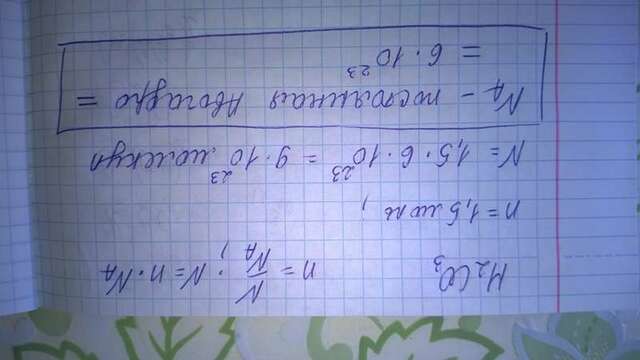 H₂CO₃ n = N/N_A ; N = n · N_A
n = 1,5 моль ;
N = 1,5 · 6 · 10²³ = 9 · 10²³ молекул
N_A – постоянная Авогадро =
= 6 · 10²³